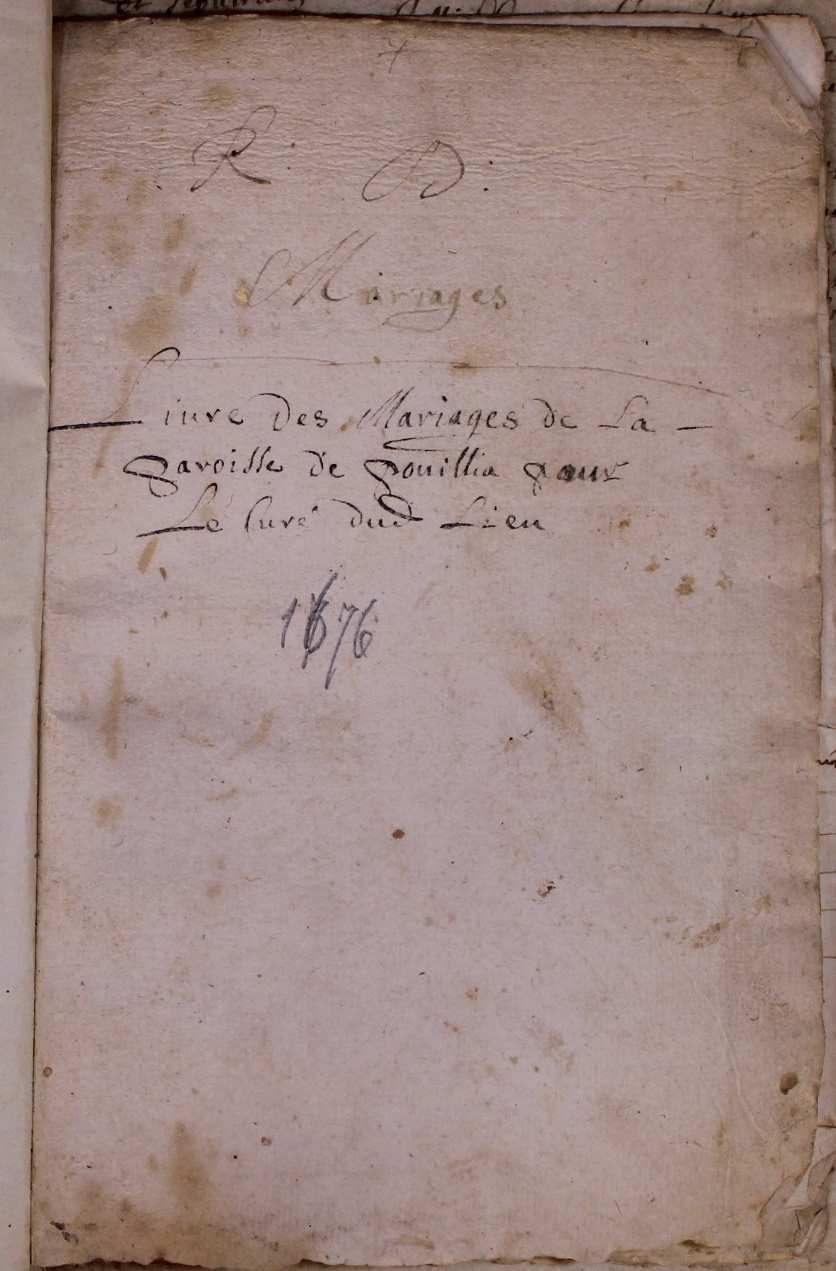 R. D.
Mariages
Livre Des Mariages de La
Paroisse de Pouillia pour
Le Curé dud Lieu
1676